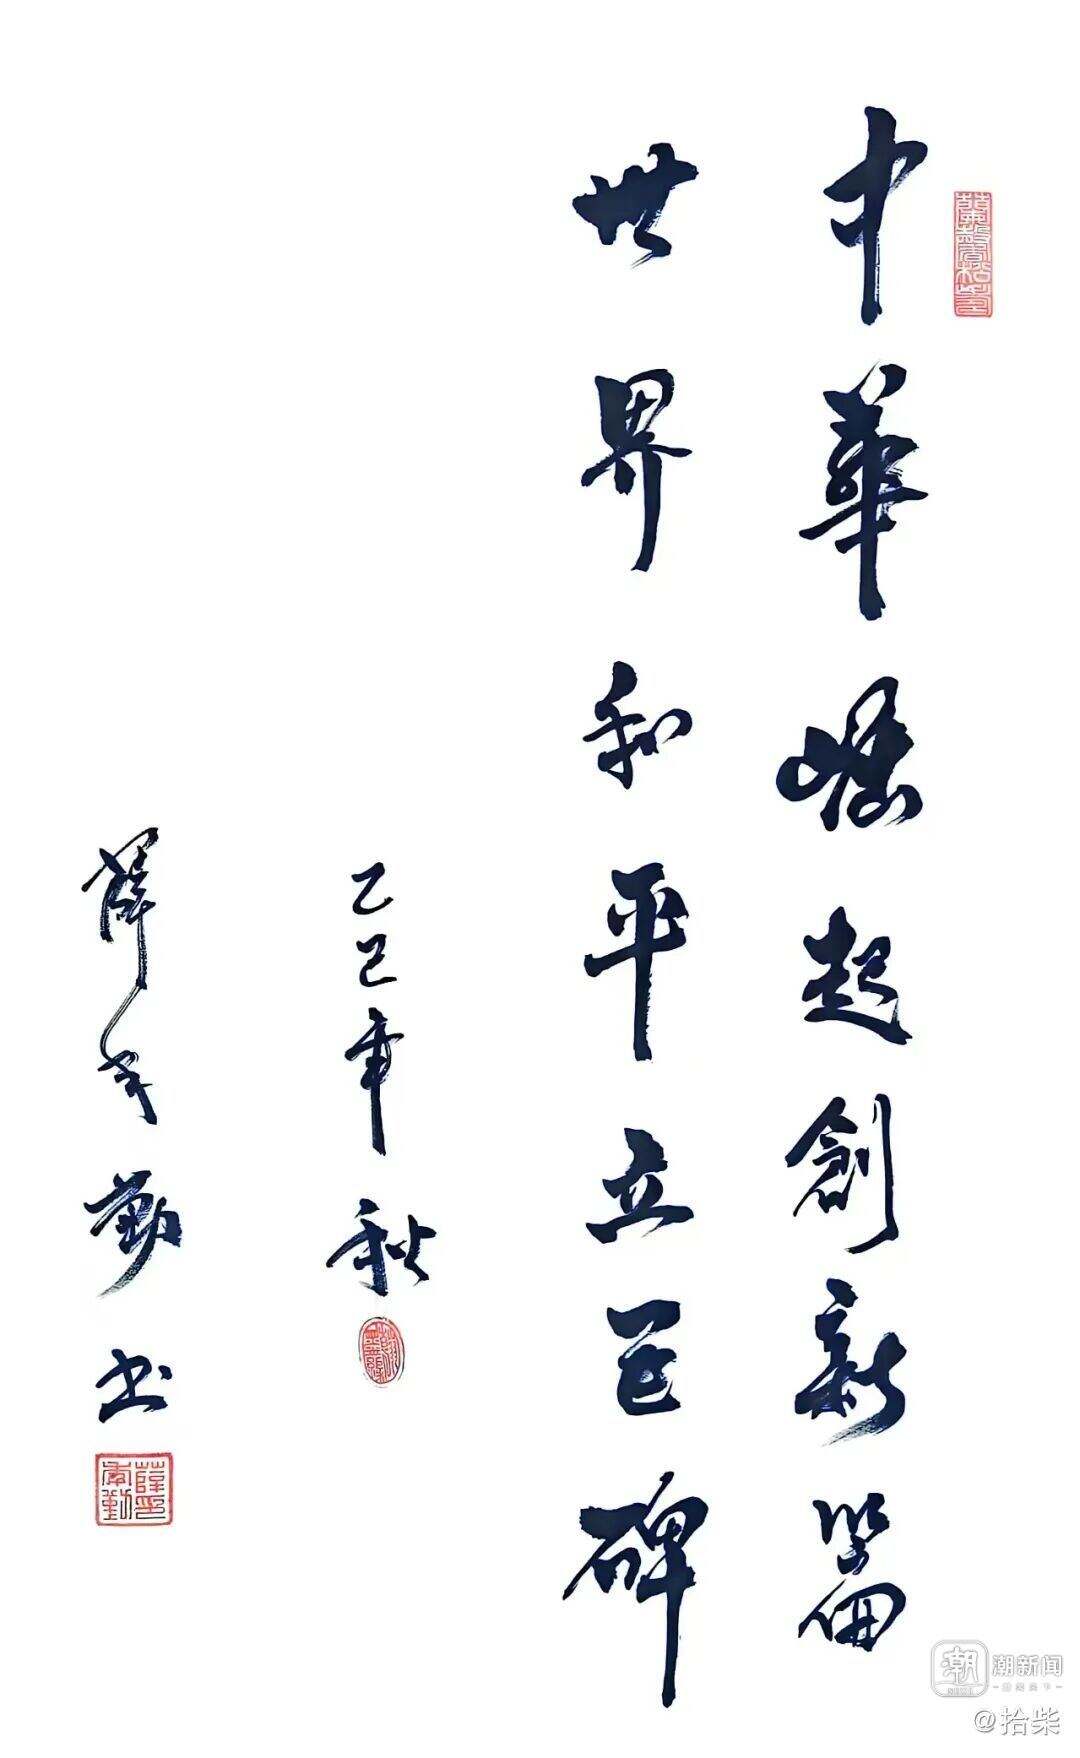 中華崛起創新篇
世界和平立巨碑
乙巳年秋
薛 勤书
潮 潮新闻
@拾柴